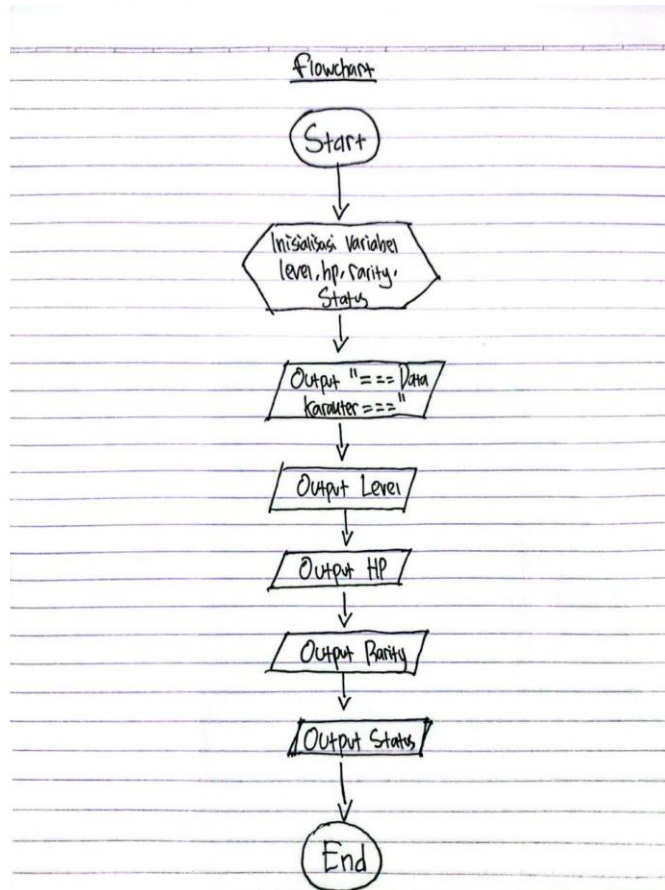 Flowchart
Start
Inisialisasi Variabel
level, hp, rarity,
Status
Output "=== Data
Karakter ==="
Output Level
Output HP
Output Rarity
Output Status
End